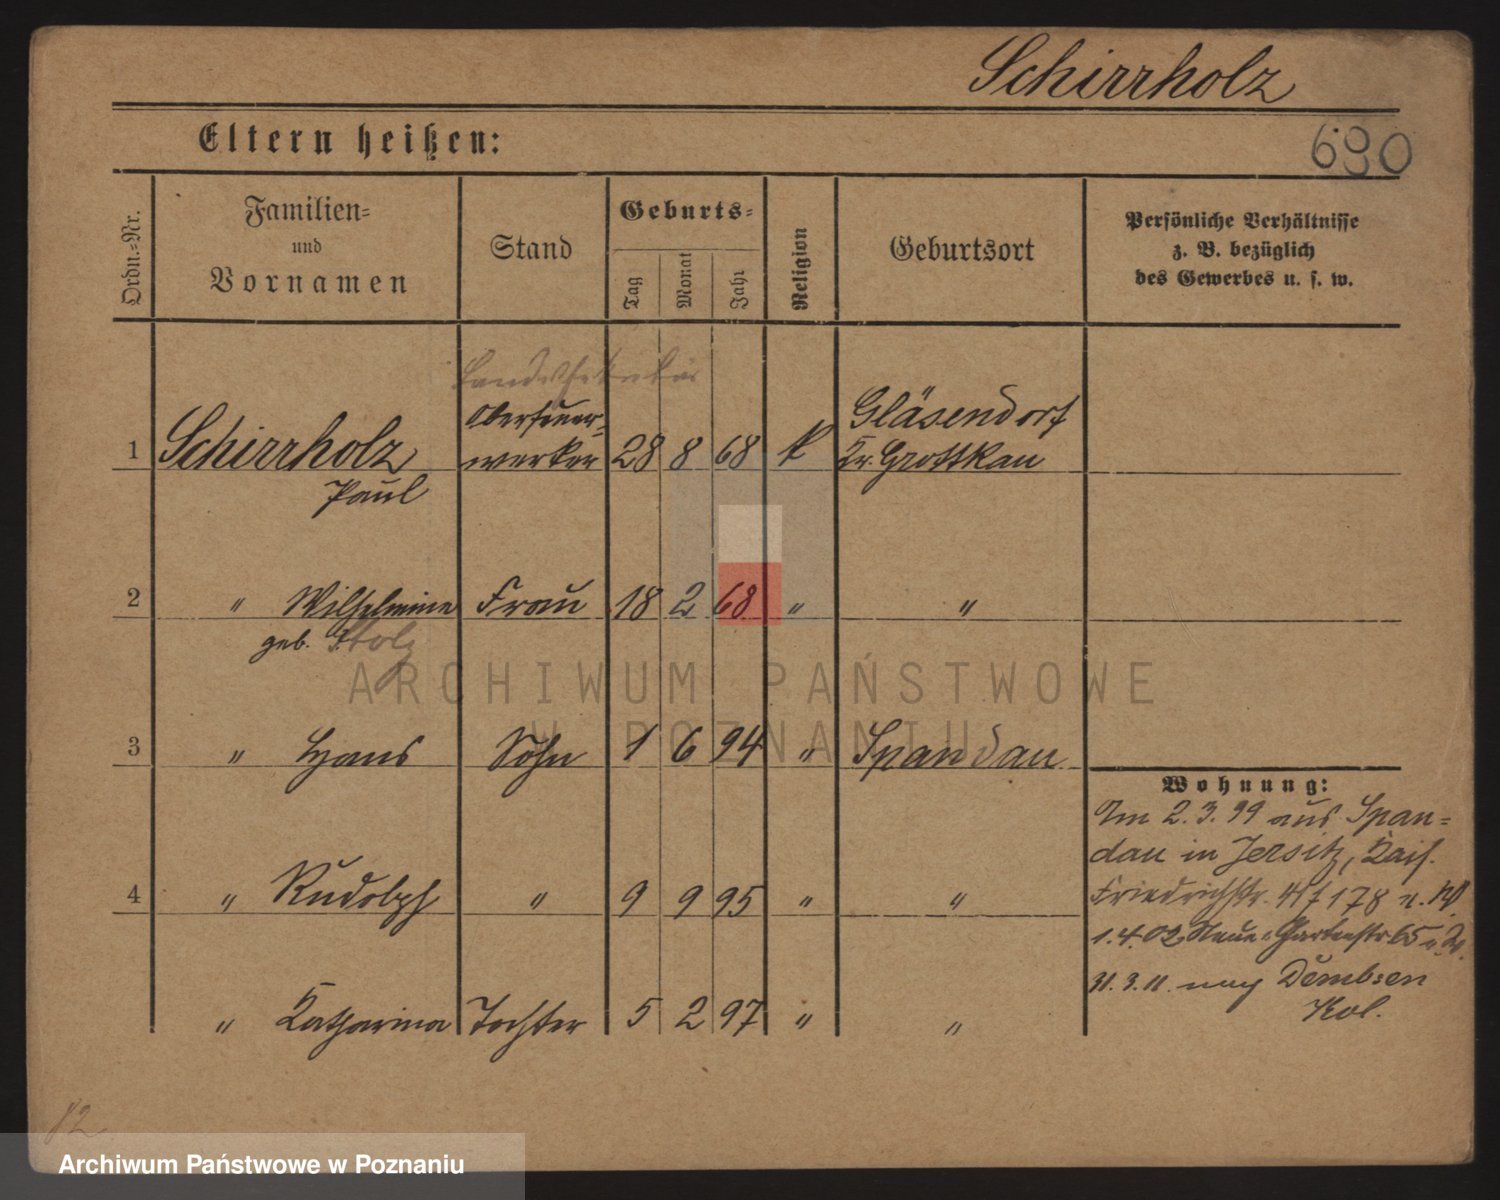 Schirrholz
Eltern heißen:
690
Ordn.-Nr.
Familien-
und
Vornamen
Stand
Geburts-
Tag
Monat
Jahr
Religion
Geburtsort
Persönliche Verhältnisse
z. B. bezüglich
des Gewerbes u. s. w.
Landessekretär
Oberfeuer-
1 Schirrholz werker 28 8 68 k Gläsendorf
Kr. Grottkau
Paul
2 " Wilhelmine Frau 18 2 68 " "
geb. Stolz
ARCHIWUM PAŃSTWOWE
W POZNANIU
3 " Hans Sohn 1 6 94 " Spandau
Wohnung:
Am 2.3.99 aus Span-
dau in Jersitz, Kais.
4 " Rudolph " 9 9 95 " "
Friedrichstr. 178 u.
1.4.02 Neue Gartenstr 65
31.3.11. nach Dembsen
Kol.
" Katharina Tochter 5 2 97 " "
82
Archiwum Państwowe w Poznaniu